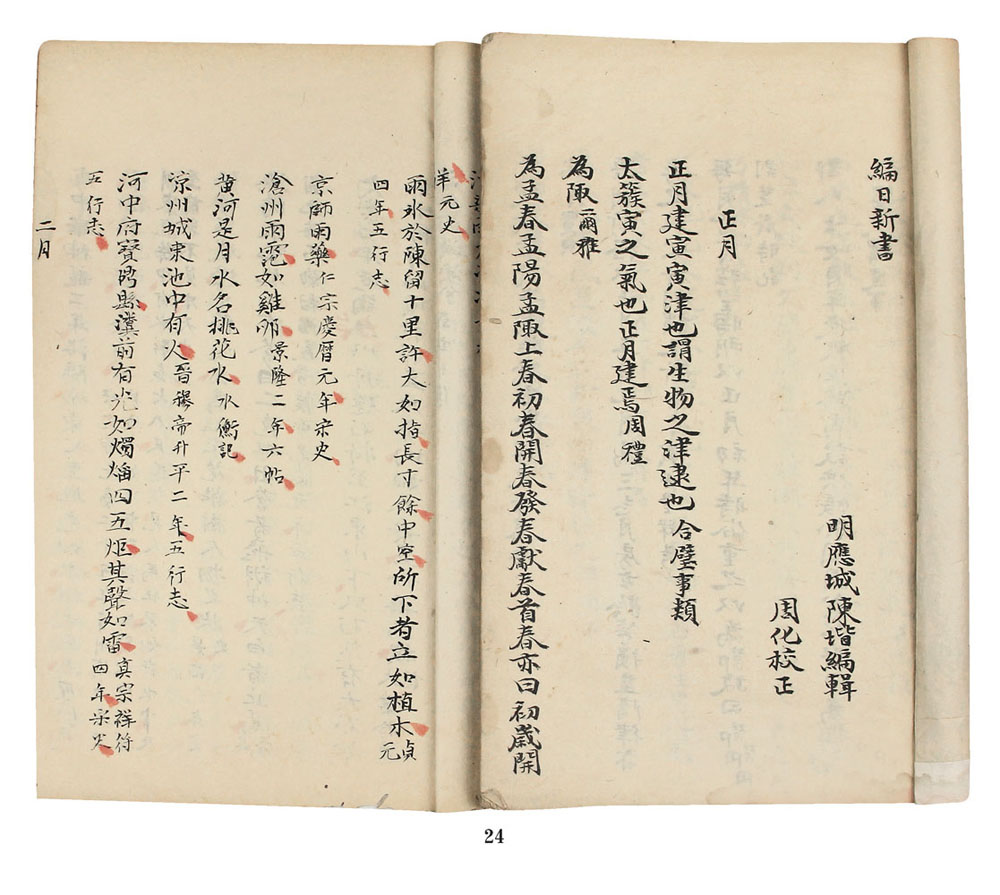 編日新書
明應城陳堦編輯
周化校正
正月
正月建寅寅津也謂生物之津逮也合璧事類
太簇寅之氣也正月建焉周禮
為陬爾雅
為孟春孟陽孟陬上春初春開春發春獻春首春亦曰初歲開
羊元史
雨氷於陳留十里許大如指長寸餘中空所下者立如植木貞元
四年五行志
京師雨藥仁宗慶曆元年宋史
滄州雨雹如雞卵景隆二年六帖
黄河是月水名桃花水水衡記
凉州城東池中有火晉穆帝升平二年五行志
河中府寶鼎縣瀵前有光如燭焰四五炬其聲如雷真宗祥符四年宋史
五行志
二月
24